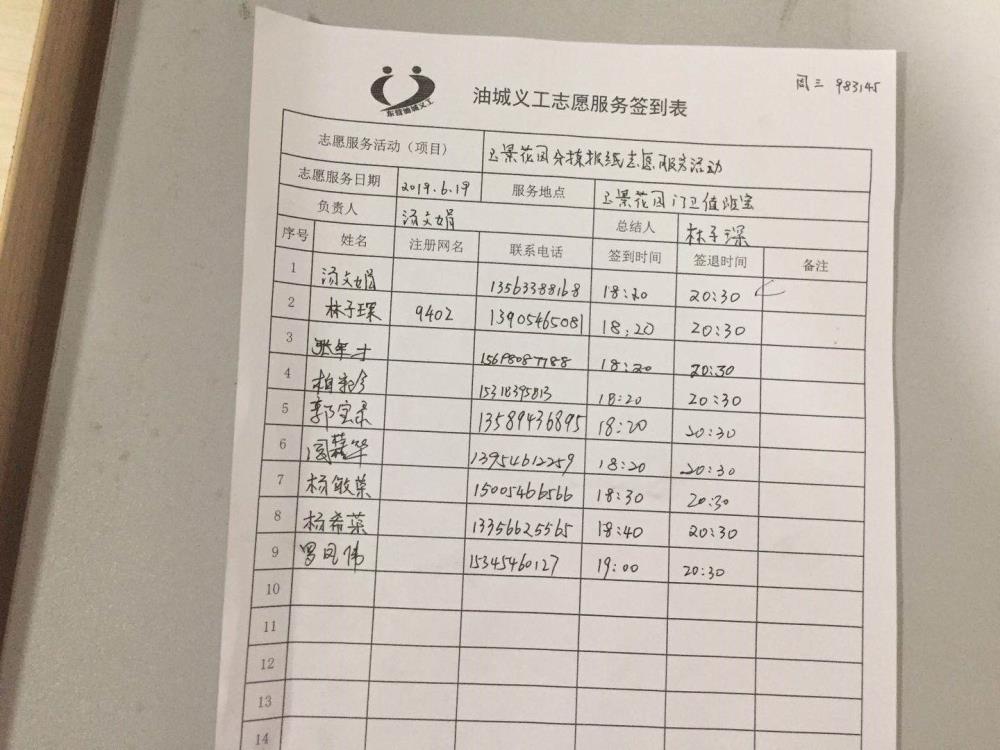 周三 983145
东营油城义工
油城义工志愿服务签到表
志愿服务活动（项目） 玉景花园分拣报纸志愿服务活动
志愿服务日期 2019.6.19 服务地点 玉景花园门卫值班室
负责人 汤文娟 总结人 林子琛
序号 姓名 注册网名 联系电话 签到时间 签退时间 备注
1 汤文娟 13563388168 18:20 20:30
2 林子琛 9402 13905465081 18:20 20:30
3 张年才 18:20 20:30
4 15318395813 18:20 20:30
5 郭宝录 13589436895 18:20 20:30
6 13954612259 18:20 20:30
7 杨敏荣 15005466566 18:30 20:30
8 杨希荣 13356625565 18:40 20:30
9 罗凤伟 15345460127 19:00 20:30
10
11
12
13
14